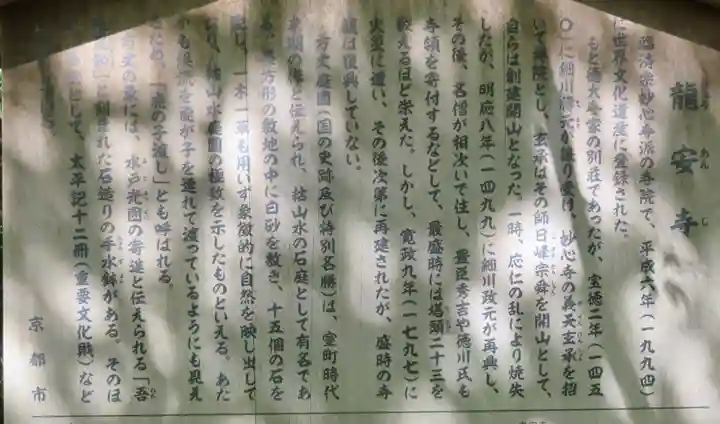 龍安寺
りょうあんじ
臨済宗妙心寺派の寺院で、平成六年（一九九四）
に世界文化遺産に登録された。
もと徳大寺家の別荘であったが、宝徳二年（一四五
〇）に細川勝元が譲り受け、妙心寺の義天玄承を招
いて禅院とし、玄承はその師日峰宗舜を開山として、
自らは創建開山となった。一時、応仁の乱により焼失
したが、明応八年（一四九九）に細川政元が再興し、
その後、名僧が相次いで住し、豊臣秀吉や徳川氏も
寺領を寄付するなどして、最盛時には塔頭二十三を
数えるほど栄えた。しかし、寛政九年（一七九七）に
火災に遭い、その後次第に再建されたが、盛時の寺
観は復興していない。
方丈庭園（国の史跡及び特別名勝）は、室町時代
末期の作と伝えられ、枯山水の石庭として有名であ
る。長方形の敷地の中に白砂を敷き、十五個の石を
配し、一木一草も用いず象徴的に自然を映し出して
おり、枯山水庭園の極致を示したものといえる。あた
かも渓流を虎が子を連れて渡っているようにも見え
るため、「虎の子渡し」とも呼ばれる。
方丈の東には、水戸光圀の寄進と伝えられる「吾
唯足知」と刻まれた石造りの手水鉢がある。そのほ
として、太平記十二冊（重要文化財）など
京都市